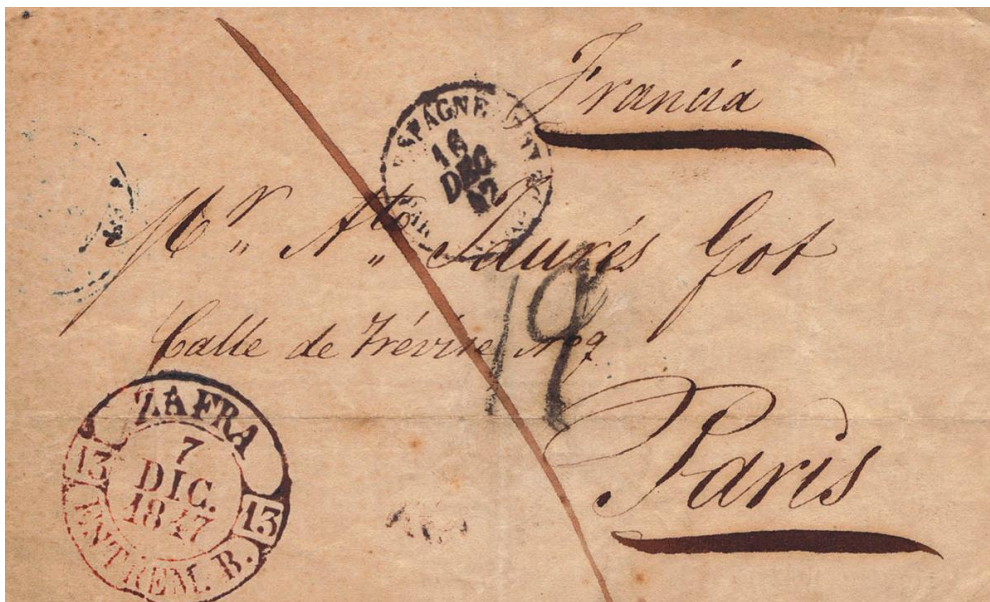 Francia
ESPAGNE
16
DEC
Mr. Ato Jaurés Got
19
Calle de Trévise No 9
Paris
ZAFRA
13 7 DIC. 1847 13
ESTREM. B.